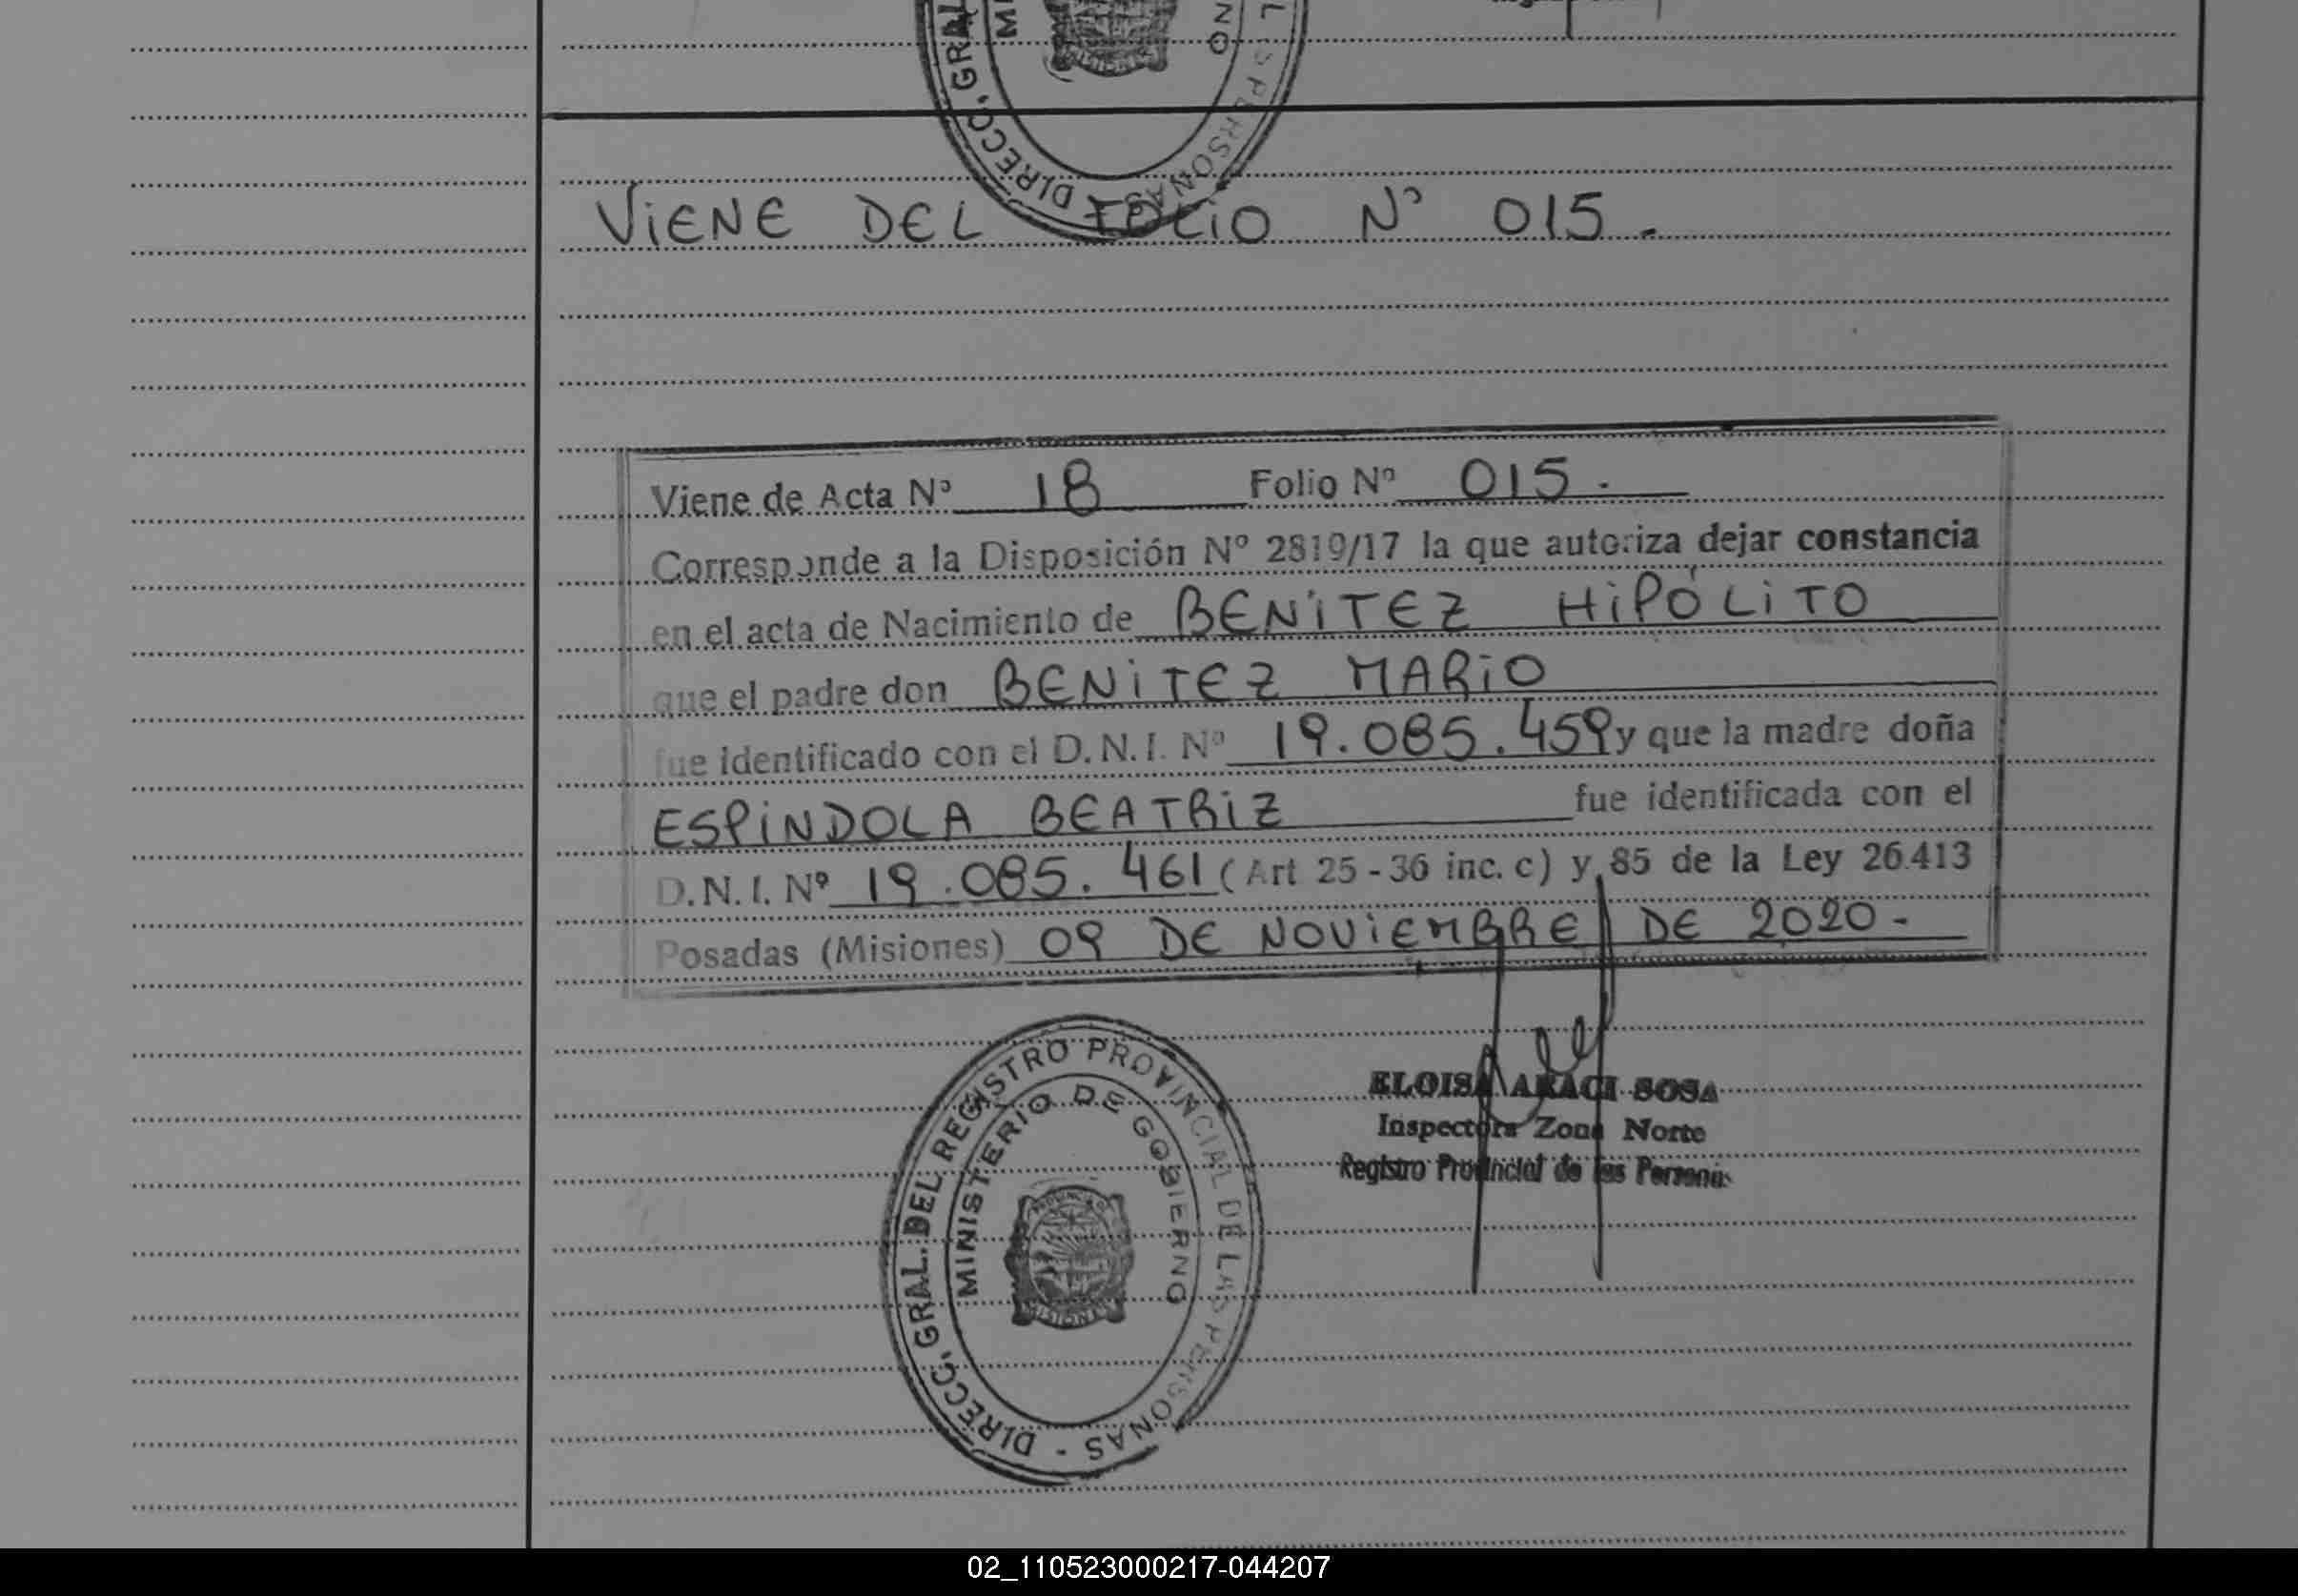 DIRECC. GRAL
VIENE DEL FOLIO Nº 015.
Viene de Acta Nº 18 Folio Nº 015.
Corresponde a la Disposición Nº 2819/17 la que autoriza dejar constancia
en el acta de Nacimiento de BENITEZ HIPÓLITO
que el padre don BENITEZ MARIO
fue identificado con el D.N.I. Nº 19.085.459 y que la madre doña
ESPINDOLA BEATRIZ fue identificada con el
D.N.I. Nº 19.085.461 (Art 25-36 inc. c) y 85 de la Ley 26.413
Posadas (Misiones) 09 DE NOVIEMBRE DE 2020-
DIRECC. GRAL. DEL REGISTRO PROVINCIAL DE LAS PERSONAS -
MINISTERIO DE GOBIERNO
MISIONES
ELOISA ARACI SOSA
Inspectora Zona Norte
Registro Provincial de las Personas
02_110523000217-044207